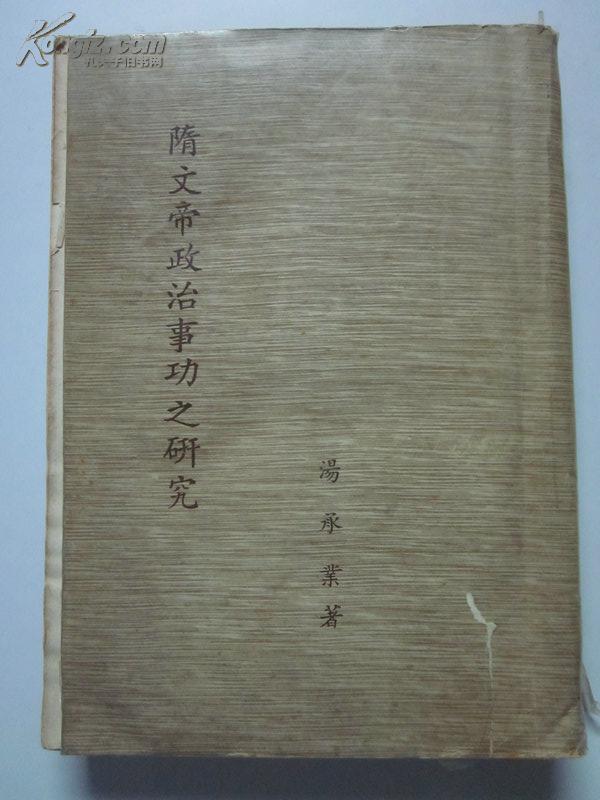 Kongfz.com
孔夫子旧书网
隋文帝政治事功之研究
湯承業著